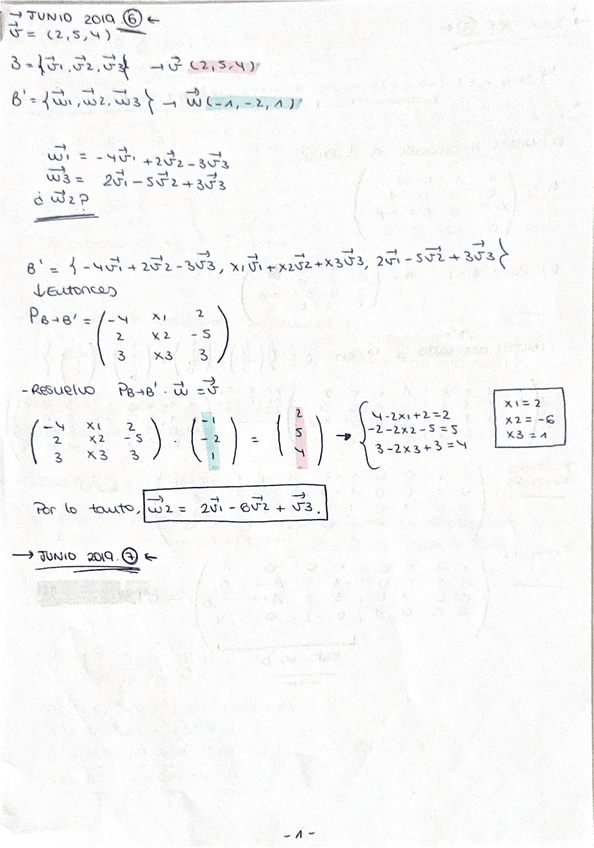 → JUNIO 2019 ⑥ ←
v⃗ = (2,5,4)
B = {v⃗1, v⃗2, v⃗3} → v⃗ (2,5,4)
B' = {w⃗1, w⃗2, w⃗3} → w⃗ (-1,-2,1)
w⃗1 = -4v⃗1 + 2v⃗2 - 3v⃗3
w⃗3 = 2v⃗1 - 5v⃗2 + 3v⃗3
¿ w⃗2?
B' = {-4v⃗1 + 2v⃗2 - 3v⃗3, x1v⃗1 + x2v⃗2 + x3v⃗3, 2v⃗1 - 5v⃗2 + 3v⃗3}
↓ Entonces
PB→B' = (-4 x1 2
2 x2 -5
3 x3 3)
- RESUELVO PB→B' · w⃗ = v⃗
(-4 x1 2
2 x2 -5
3 x3 3) · (-1
-2
1) = (2
5
4) → {4-2x1+2=2
-2-2x2-5=5
3-2x3+3=4
x1 = 2
x2 = -6
x3 = 1
Por lo tanto, w⃗2 = 2v⃗1 - 6v⃗2 + v⃗3.
→ JUNIO 2019. ⑦ ←
- 1 -